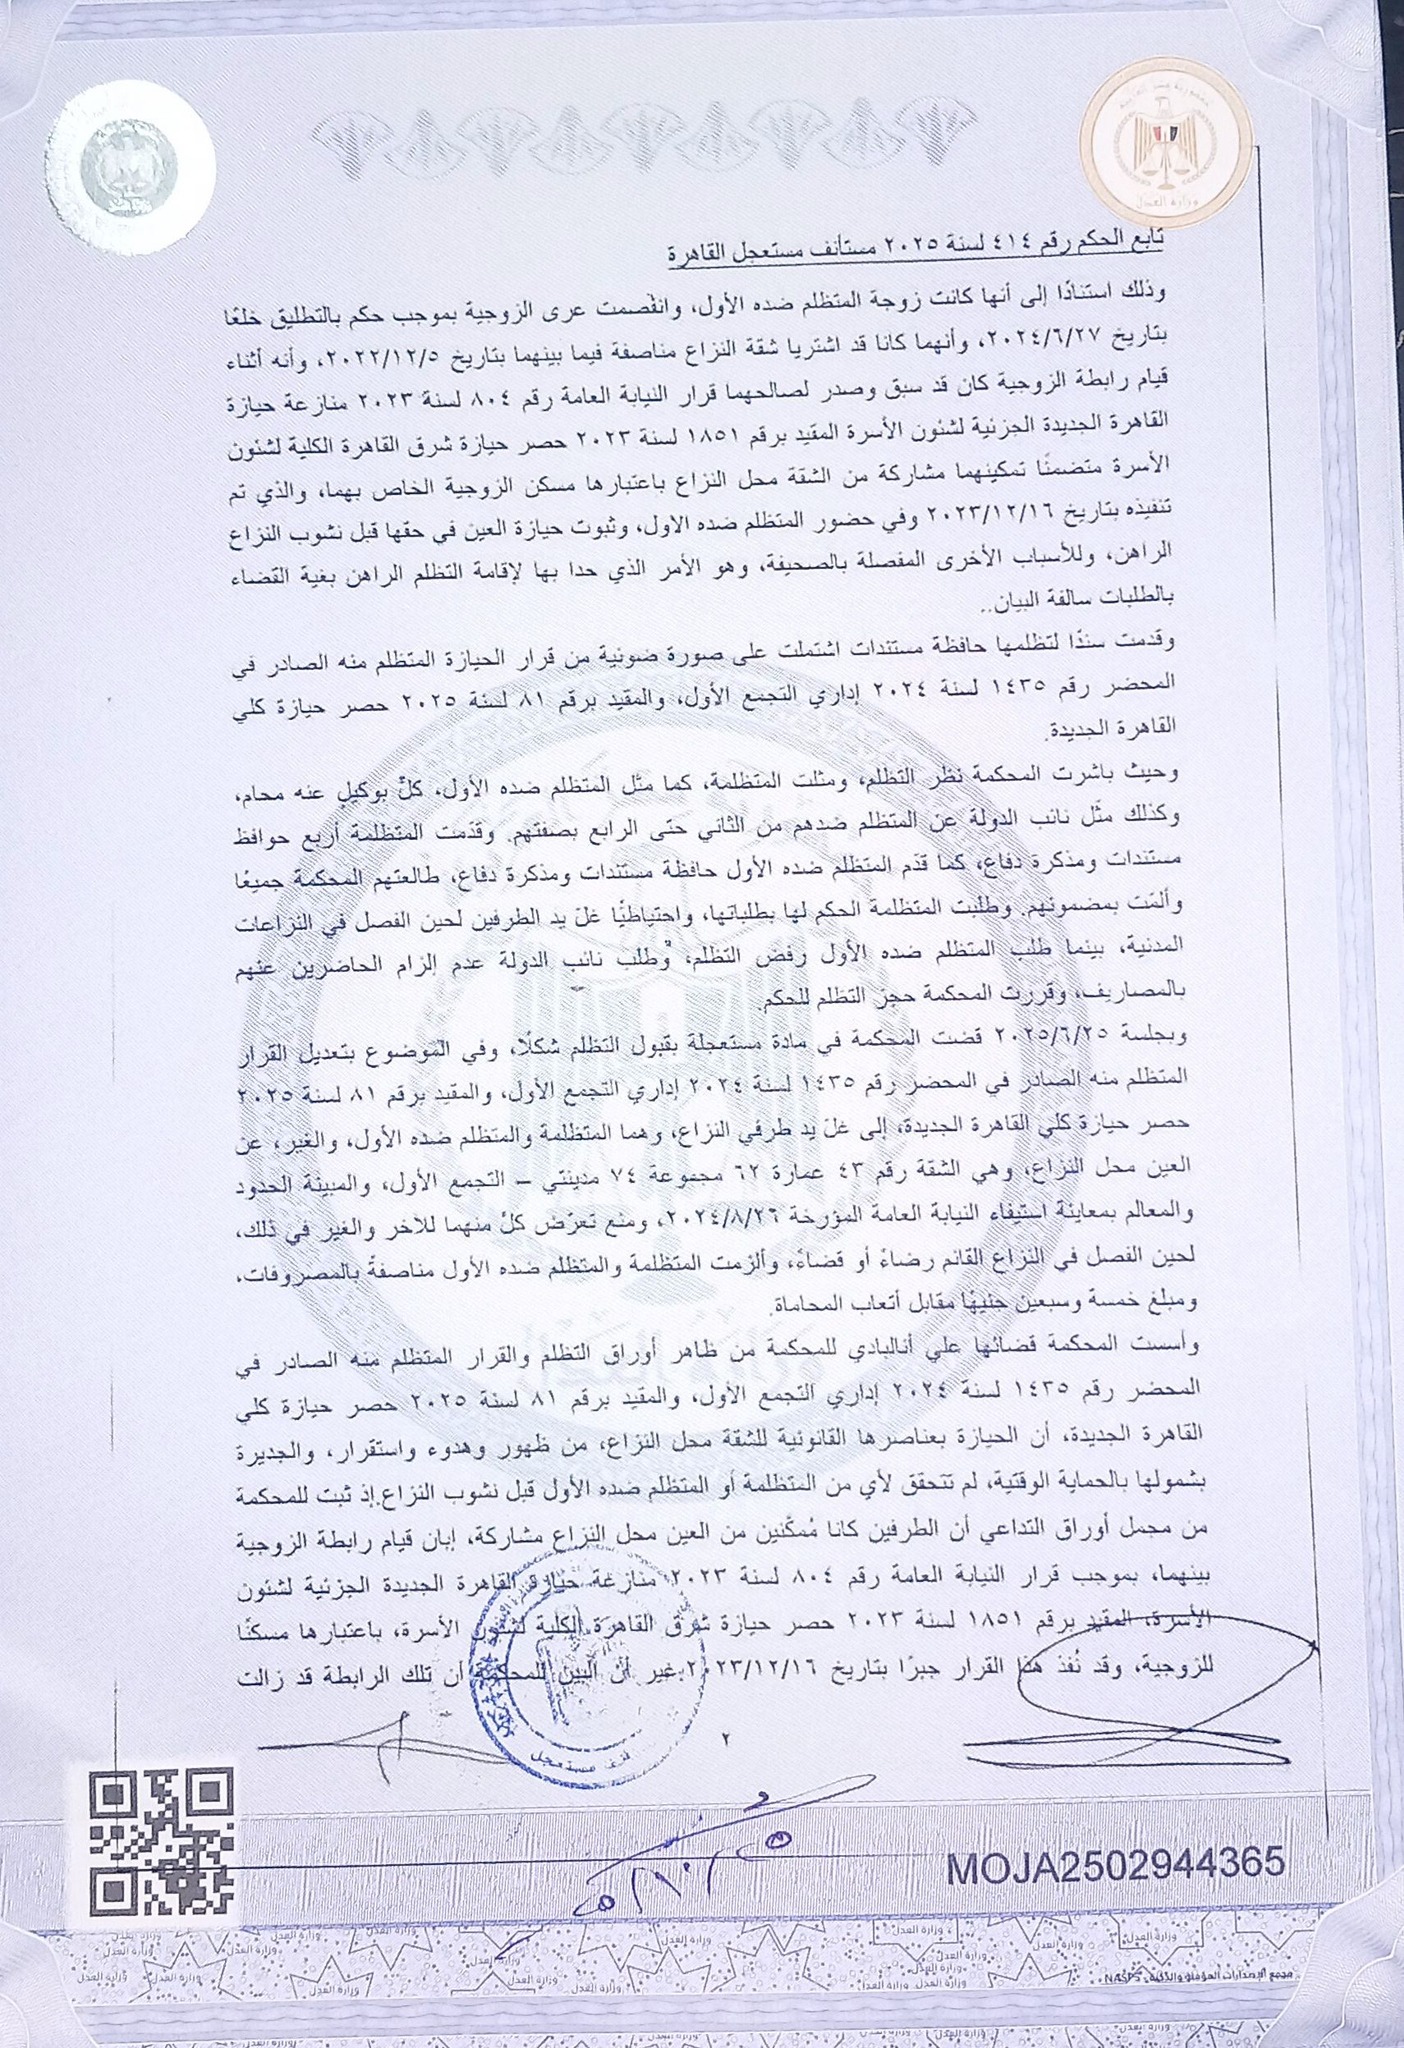 جمهورية مصر العربية
وزارة العدل
تابع الحكم رقم ٤١٤ لسنة ٢٠٢٥ مستأنف مستعجل القاهرة
وذلك استنادًا إلى أنها كانت زوجة المتظلم ضده الأول، وانفصمت عرى الزوجية بموجب حكم بالتطليق خلعًا
بتاريخ ٢٠٢٤/٦/٢٧، وأنهما كانا قد اشتريا شقة النزاع مناصفة فيما بينهما بتاريخ ٢٠٢٢/١٢/٥، وأنه أثناء
قيام رابطة الزوجية كان قد سبق وصدر لصالحهما قرار النيابة العامة رقم ٨٠٤ لسنة ٢٠٢٣ منازعة حيازة
القاهرة الجديدة الجزئية لشئون الأسرة المقيد برقم ١٨٥١ لسنة ٢٠٢٣ حصر حيازة شرق القاهرة الكلية لشئون
الأسرة متضمنًا تمكينهما مشاركة من الشقة محل النزاع باعتبارها مسكن الزوجية الخاص بهما، والذي تم
تنفيذه بتاريخ ٢٠٢٣/١٢/١٦ وفي حضور المتظلم ضده الاول، وثبوت حيازة العين في حقها قبل نشوب النزاع
الراهن، وللأسباب الأخرى المفصلة بالصحيفة، وهو الأمر الذي حدا بها لإقامة التظلم الراهن بغية القضاء
بالطلبات سالفة البيان..
وقدمت سندًا لتظلمها حافظة مستندات اشتملت على صورة ضوئية من قرار الحيازة المتظلم منه الصادر في
المحضر رقم ١٤٣٥ لسنة ٢٠٢٤ إداري التجمع الأول، والمقيد برقم ٨١ لسنة ٢٠٢٥ حصر حيازة كلي
القاهرة الجديدة.
وحيث باشرت المحكمة نظر التظلم، ومثلت المتظلمة، كما مثل المتظلم ضده الأول، كلٌ بوكيلٍ عنه محام،
وكذلك مثّل نائب الدولة عن المتظلم ضدهم من الثاني حتى الرابع بصفتهم. وقدّمت المتظلمة أربع حوافظ
مستندات ومذكرة دفاع، كما قدّم المتظلم ضده الأول حافظة مستندات ومذكرة دفاع، طالعتهم المحكمة جميعًا
وألمّت بمضمونهم. وطلبت المتظلمة الحكم لها بطلباتها، واحتياطيًا غلّ يد الطرفين لحين الفصل في النزاعات
المدنية، بينما طلب المتظلم ضده الأول رفض التظلم، وطلب نائب الدولة عدم إلزام الحاضرين عنهم
بالمصاريف، وقررت المحكمة حجز التظلم للحكم.
وبجلسة ٢٠٢٥/٦/٢٥ قضت المحكمة في مادة مستعجلة بقبول التظلم شكلًا، وفي الموضوع بتعديل القرار
المتظلم منه الصادر في المحضر رقم ١٤٣٥ لسنة ٢٠٢٤ إداري التجمع الأول، والمقيد برقم ٨١ لسنة ٢٠٢٥
حصر حيازة كلي القاهرة الجديدة، إلى غلّ يد طرفي النزاع، وهما المتظلمة والمتظلم ضده الأول، والغير، عن
العين محل النزاع، وهي الشقة رقم ٤٣ عمارة ٦٢ مجموعة ٧٤ مدينتي – التجمع الأول، والمبينة الحدود
والمعالم بمعاينة استيفاء النيابة العامة المؤرخة ٢٠٢٤/٨/٢٦، ومنع تعرّض كلٌ منهما للآخر والغير في ذلك،
لحين الفصل في النزاع القائم رضاءً أو قضاءً، وألزمت المتظلمة والمتظلم ضده الأول مناصفةً بالمصروفات،
ومبلغ خمسة وسبعين جنيهًا مقابل أتعاب المحاماة.
وأسست المحكمة قضائها علي أنالبادي للمحكمة من ظاهر أوراق التظلم والقرار المتظلم منه الصادر في
المحضر رقم ١٤٣٥ لسنة ٢٠٢٤ إداري التجمع الأول، والمقيد برقم ٨١ لسنة ٢٠٢٥ حصر حيازة كلي
القاهرة الجديدة، أن الحيازة بعناصرها القانونية للشقة محل النزاع، من ظهور وهدوء واستقرار، والجديرة
بشمولها بالحماية الوقتية، لم تتحقق لأي من المتظلمة أو المتظلم ضده الأول قبل نشوب النزاع.إذ ثبت للمحكمة
من مجمل أوراق التداعي أن الطرفين كانا مُمكّنين من العين محل النزاع مشاركة، إبان قيام رابطة الزوجية
بينهما، بموجب قرار النيابة العامة رقم ٨٠٤ لسنة ٢٠٢٣ منازعة حيازة القاهرة الجديدة الجزئية لشئون
الأسرة، المقيد برقم ١٨٥١ لسنة ٢٠٢٣ حصر حيازة شرق القاهرة الكلية لشئون الأسرة، باعتبارها مسكنًا
للزوجية، وقد نُفذ هذا القرار جبرًا بتاريخ ٢٠٢٣/١٢/١٦.غير أن البين للمحكمة أن تلك الرابطة قد زالت
٢
MOJA2502944365
وزارة العدل
مجمع الإصدارات المؤمنة والذكية - NASPS